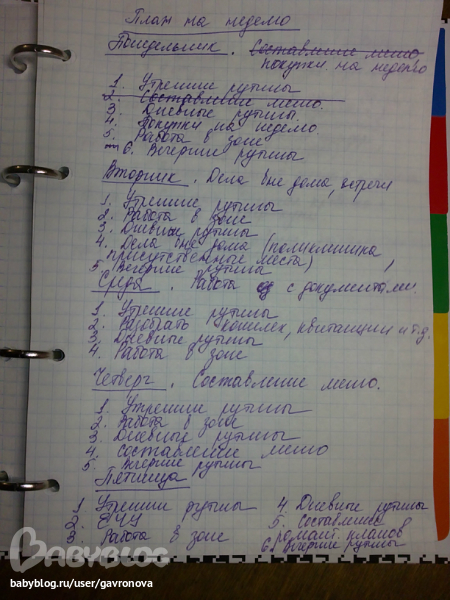 План на неделю
Понедельник. Составление меню
покупки на неделю
1. Утренние рутины
2. Составление меню.
3. Дневные рутины.
4. Покупки на неделю.
5. Работа в зоне
6. Вечерние рутины
Вторник. Дела вне дома, встречи
1. Утренние рутины
2. Работа в зоне
3. Дневные рутины
4. Дела вне дома (поликлиника,
присутственные места)
5. Вечерние рутины
Среда. Работа с документами.
1. Утренние рутины
2. Разобрать кошелек, квитанции и т.д.
3. Дневные рутины
4. Работа в зоне
Четверг. Составление меню.
1. Утренние рутины
2. Работа в зоне
3. Дневные рутины
4. составление меню
5. Вечерние рутины
Пятница
1. Утренние рутины
2.
3. Работа в зоне
4. Дневные рутины
5. Составление
романт. планов
6. Вечерние рутины
BABYBLOG
babyblog.ru/user/gavronova